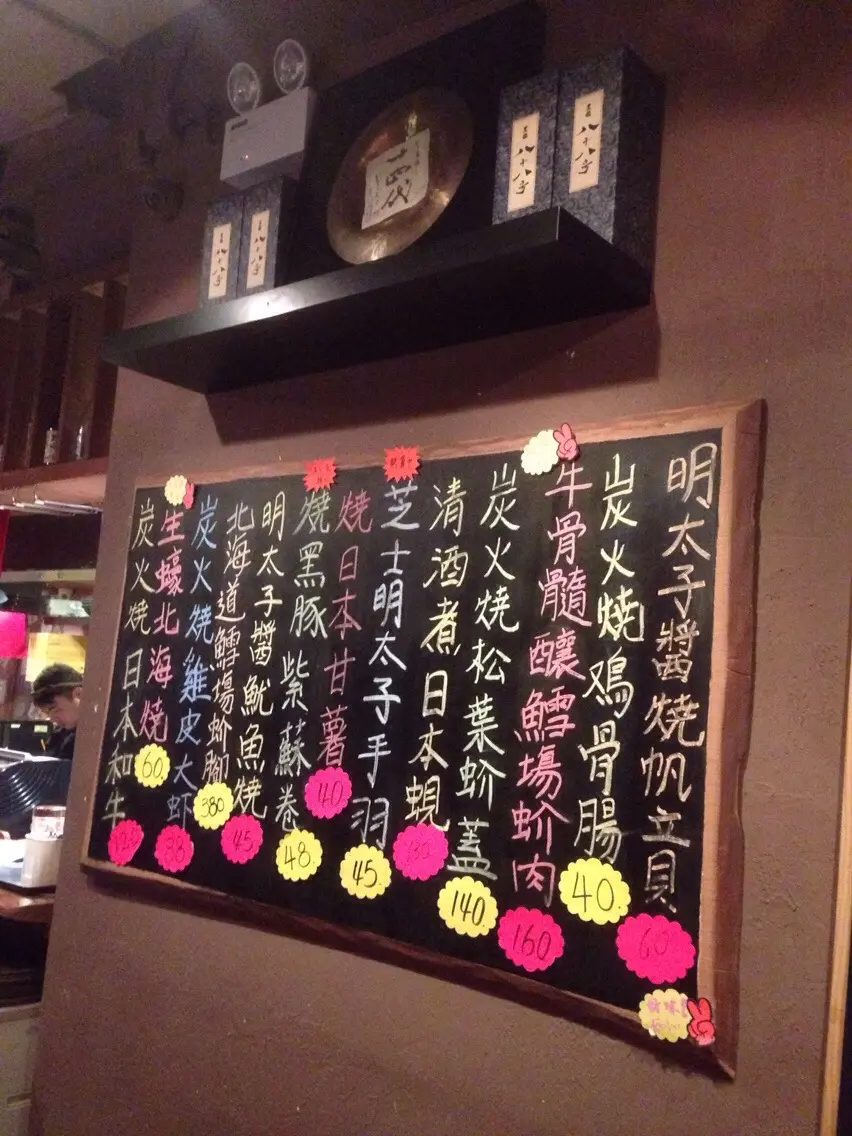 十四代
八十八
八十八
八十八
八十八
明太子醬燒帆立貝
60
炭火燒鳮骨腸
40.
牛骨髓釀鱈場蚧肉
160
炭火燒松葉蚧蓋
140.
清酒煮日本蜆
130
芝士明太子手羽
45.
燒日本甘薯
40
燒黑豚紫蘇卷
48.
明太子醬魷魚燒
45
北海道鱈場蚧腳
380
炭火燒雞皮大虾
38
生蠔北海燒
60.
炭火燒日本和牛